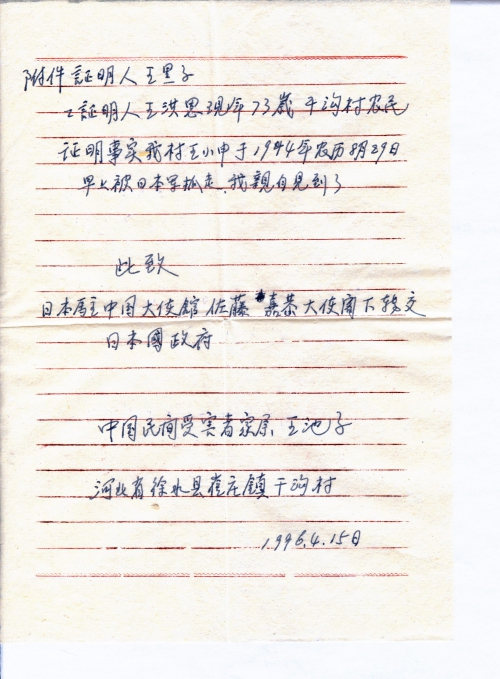 附件 証明人 王黑子
証明人王洪思现年73歲 干沟村农民
証明事实我村王小中于1944年农历8月29日
早上被日本军抓走,我親自見到了
此致
日本駐中国大使館 佐藤 嘉恭大使阁下 转交
日本國政府
中国民间受害者家属、王池子
河北省徐水县崔庄鎮干沟村
1996.4.15日